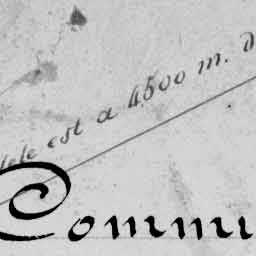 est a 4500 m. d
Commu